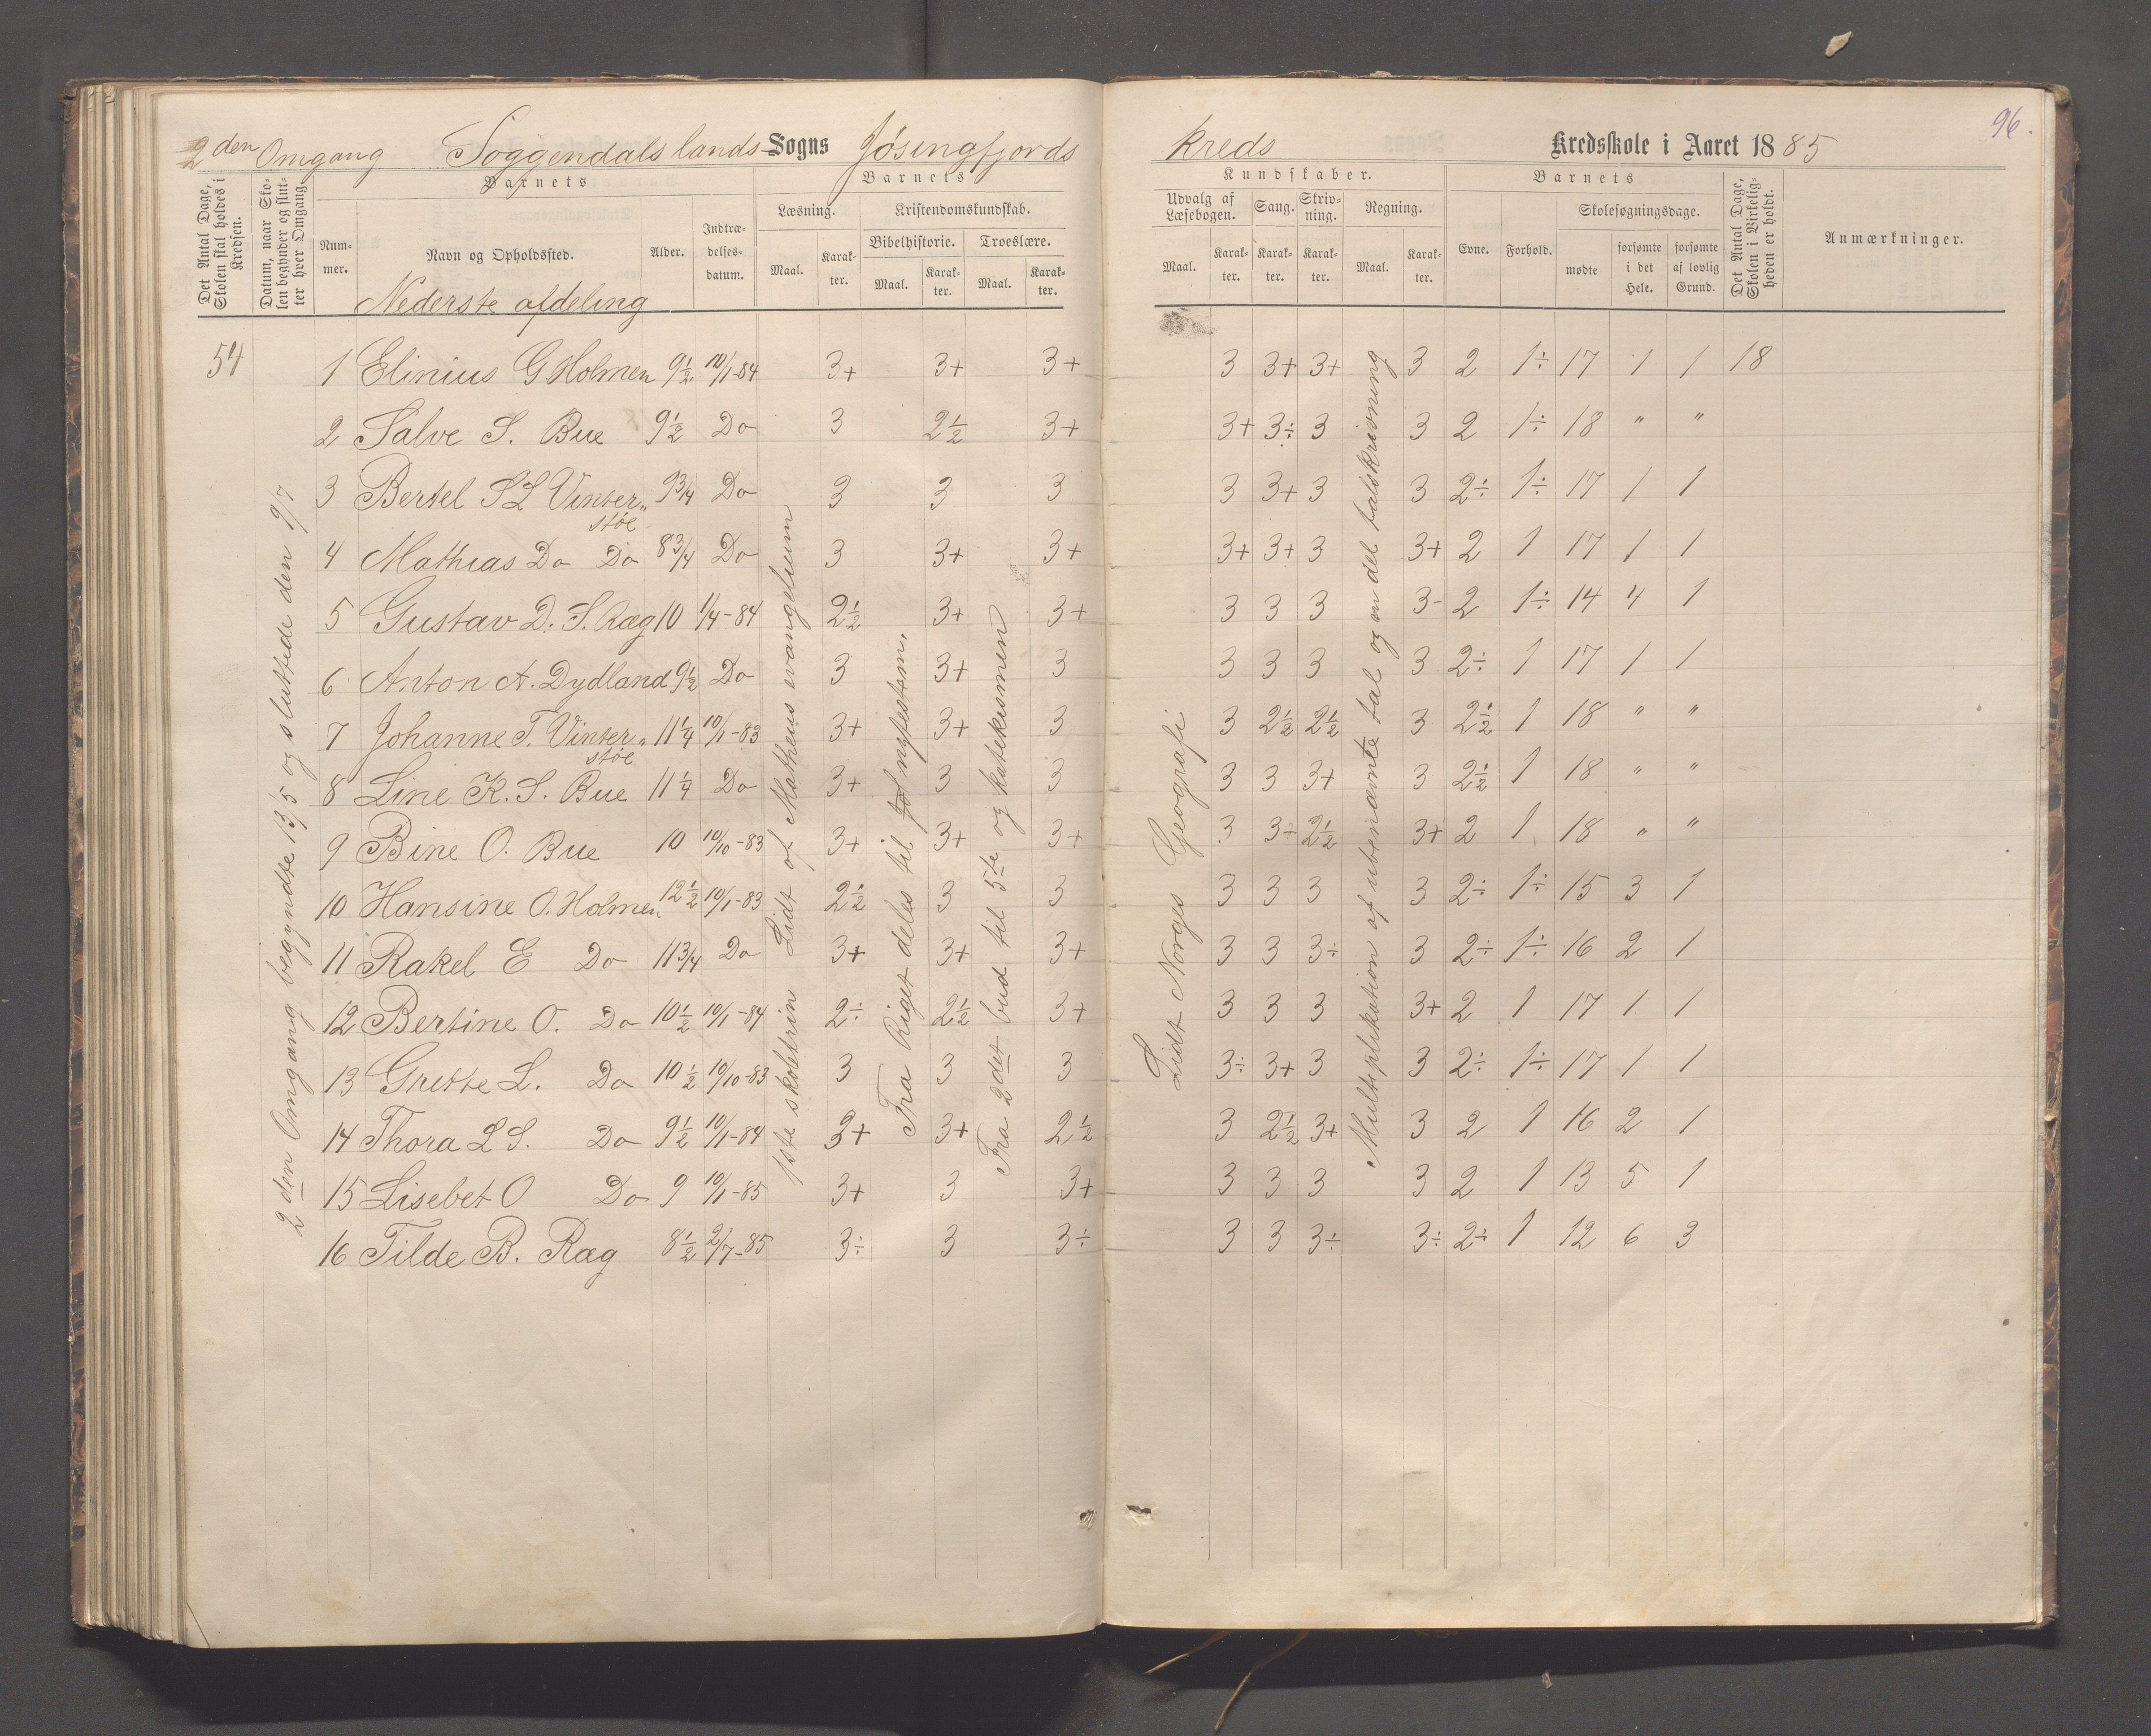 96.
2den Omgang Soggendals lands Sogns Jøsingfjords kreds Kredsskole i Aaret 1885
Det Antal Dage, Skolen skal holdes i Kredsen.
Datum, naar Skolen begynder og slutter hver Omgang.
Barnets
Nummer.
Navn og Opholdssted.
Alder.
Indtrædelsesdatum.
Barnets
Læsning.
Maal.
Karakter.
Kristendomskundskab.
Bibelhistorie.
Maal.
Karakter.
Troeslære.
Maal.
Karakter.
Kundskaber.
Udvalg af Læsebogen.
Maal.
Karakter.
Sang.
Karakter.
Skrivning.
Karakter.
Regning.
Maal.
Karakter.
Barnets
Evne.
Forhold.
Skolesøgningsdage.
mødte
forsømte i det Hele.
forsømte af lovlig Grund.
Det Antal Dage, Skolen i Virkeligheden er holdt.
Anmærkninger.
Nederste afdeling
54 1 Elinius G Holmen 9½ 10/1-84 3+ 3+ 3+ 3 3+ 3+ 3 2 1÷ 17 1 1 18
2 Salve S. Bue 9½ Do 3 2½ 3+ 3+ 3÷ 3 3 2 1÷ 18 " "
3 Bertel S L Vinter„støe 9¾ Do 3 3 3 3 3+ 3 3 2÷ 1÷ 17 1 1
4 Mathias Do Do 8¾ Do 3 3+ 3+ 3+ 3+ 3 3+ 2 1 17 1 1
5 Gustav D. S. Ræg 10 1/4-84 2½ 3+ 3+ 3 3 3 3- 2 1÷ 14 4 1
6 Anton A. Dydland 9½ Do 3 3+ 3 3 3 3 3 2÷ 1 17 1 1
7 Johanne T. Vinter„støe 11¼ 10/1-83 3+ 3+ 3 3 2½ 2½ 3 2½ 1 18 " "
8 Line K. S. Bue 11¼ Do 3+ 3 3 3 3 3+ 3 2½ 1 18 " "
9 Bine O. Bue 10 10/10-83 3+ 3+ 3+ 3 3÷ 2½ 3+ 2 1 18 " "
10 Hansine O. Holmen 12½ 10/1-83 2½ 3 3 3 3 3 3 2÷ 1÷ 15 3 1
11 Rakel E Do 11¾ Do 3+ 3+ 3+ 3 3 3÷ 3 2÷ 1÷ 16 2 1
12 Bertine O. Do 10½ 10/1-84 2÷ 2½ 3+ 3 3 3 3+ 2 1 17 1 1
13 Gritte L. Do 10½ 10/10-83 3 3 3 3÷ 3+ 3 3 2÷ 1÷ 17 1 1
14 Thora L S. Do 9½ 10/1-84 3+ 3+ 2½ 3 2½ 3+ 3 2 1 16 2 1
15 Lisebet O Do 9 10/1-85 3+ 3 3+ 3 3 3 3 2 1 13 5 1
16 Tilde B. Ræg 8½ 2/7-85 3÷ 3 3÷ 3 3 3÷ 3÷ 2÷ 1 12 6 3
2den Omgang begyndte 13/5 og sluttede den 9/7
1ste skoletrin Lidt af Matheus evangelium
Fra Riget deles til nyfestam.
Fra 2det bud til 5te og katekismen
Lidt Norges Geografi
Multiplikation af ubenævnte tal og en del talskrivning